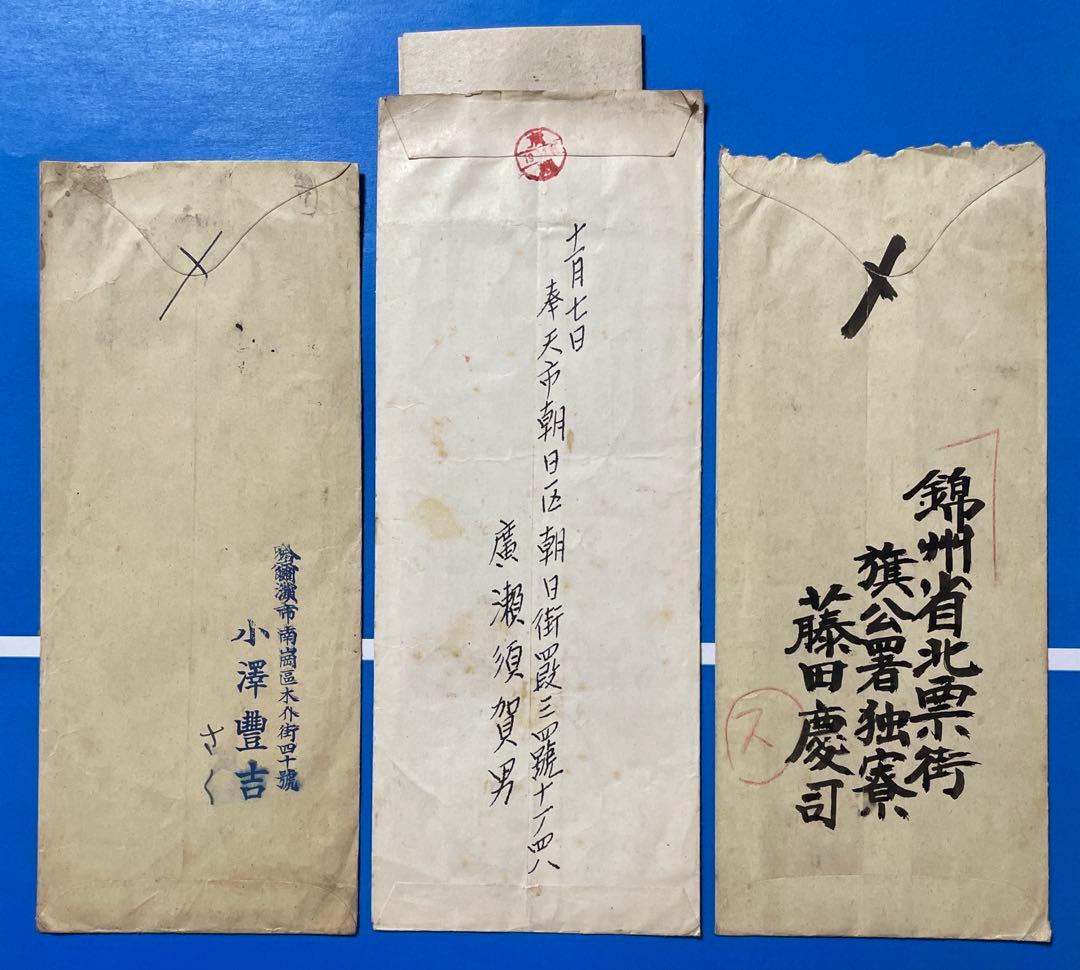 哈爾濱市南崗區木介街四十號
小澤豐吉
さく
十一月七日
奉天市朝日区朝日街四段三四號十一ノ四八
廣瀬須賀男
錦州省北票街
旗公署独寮
藤田慶司
ス